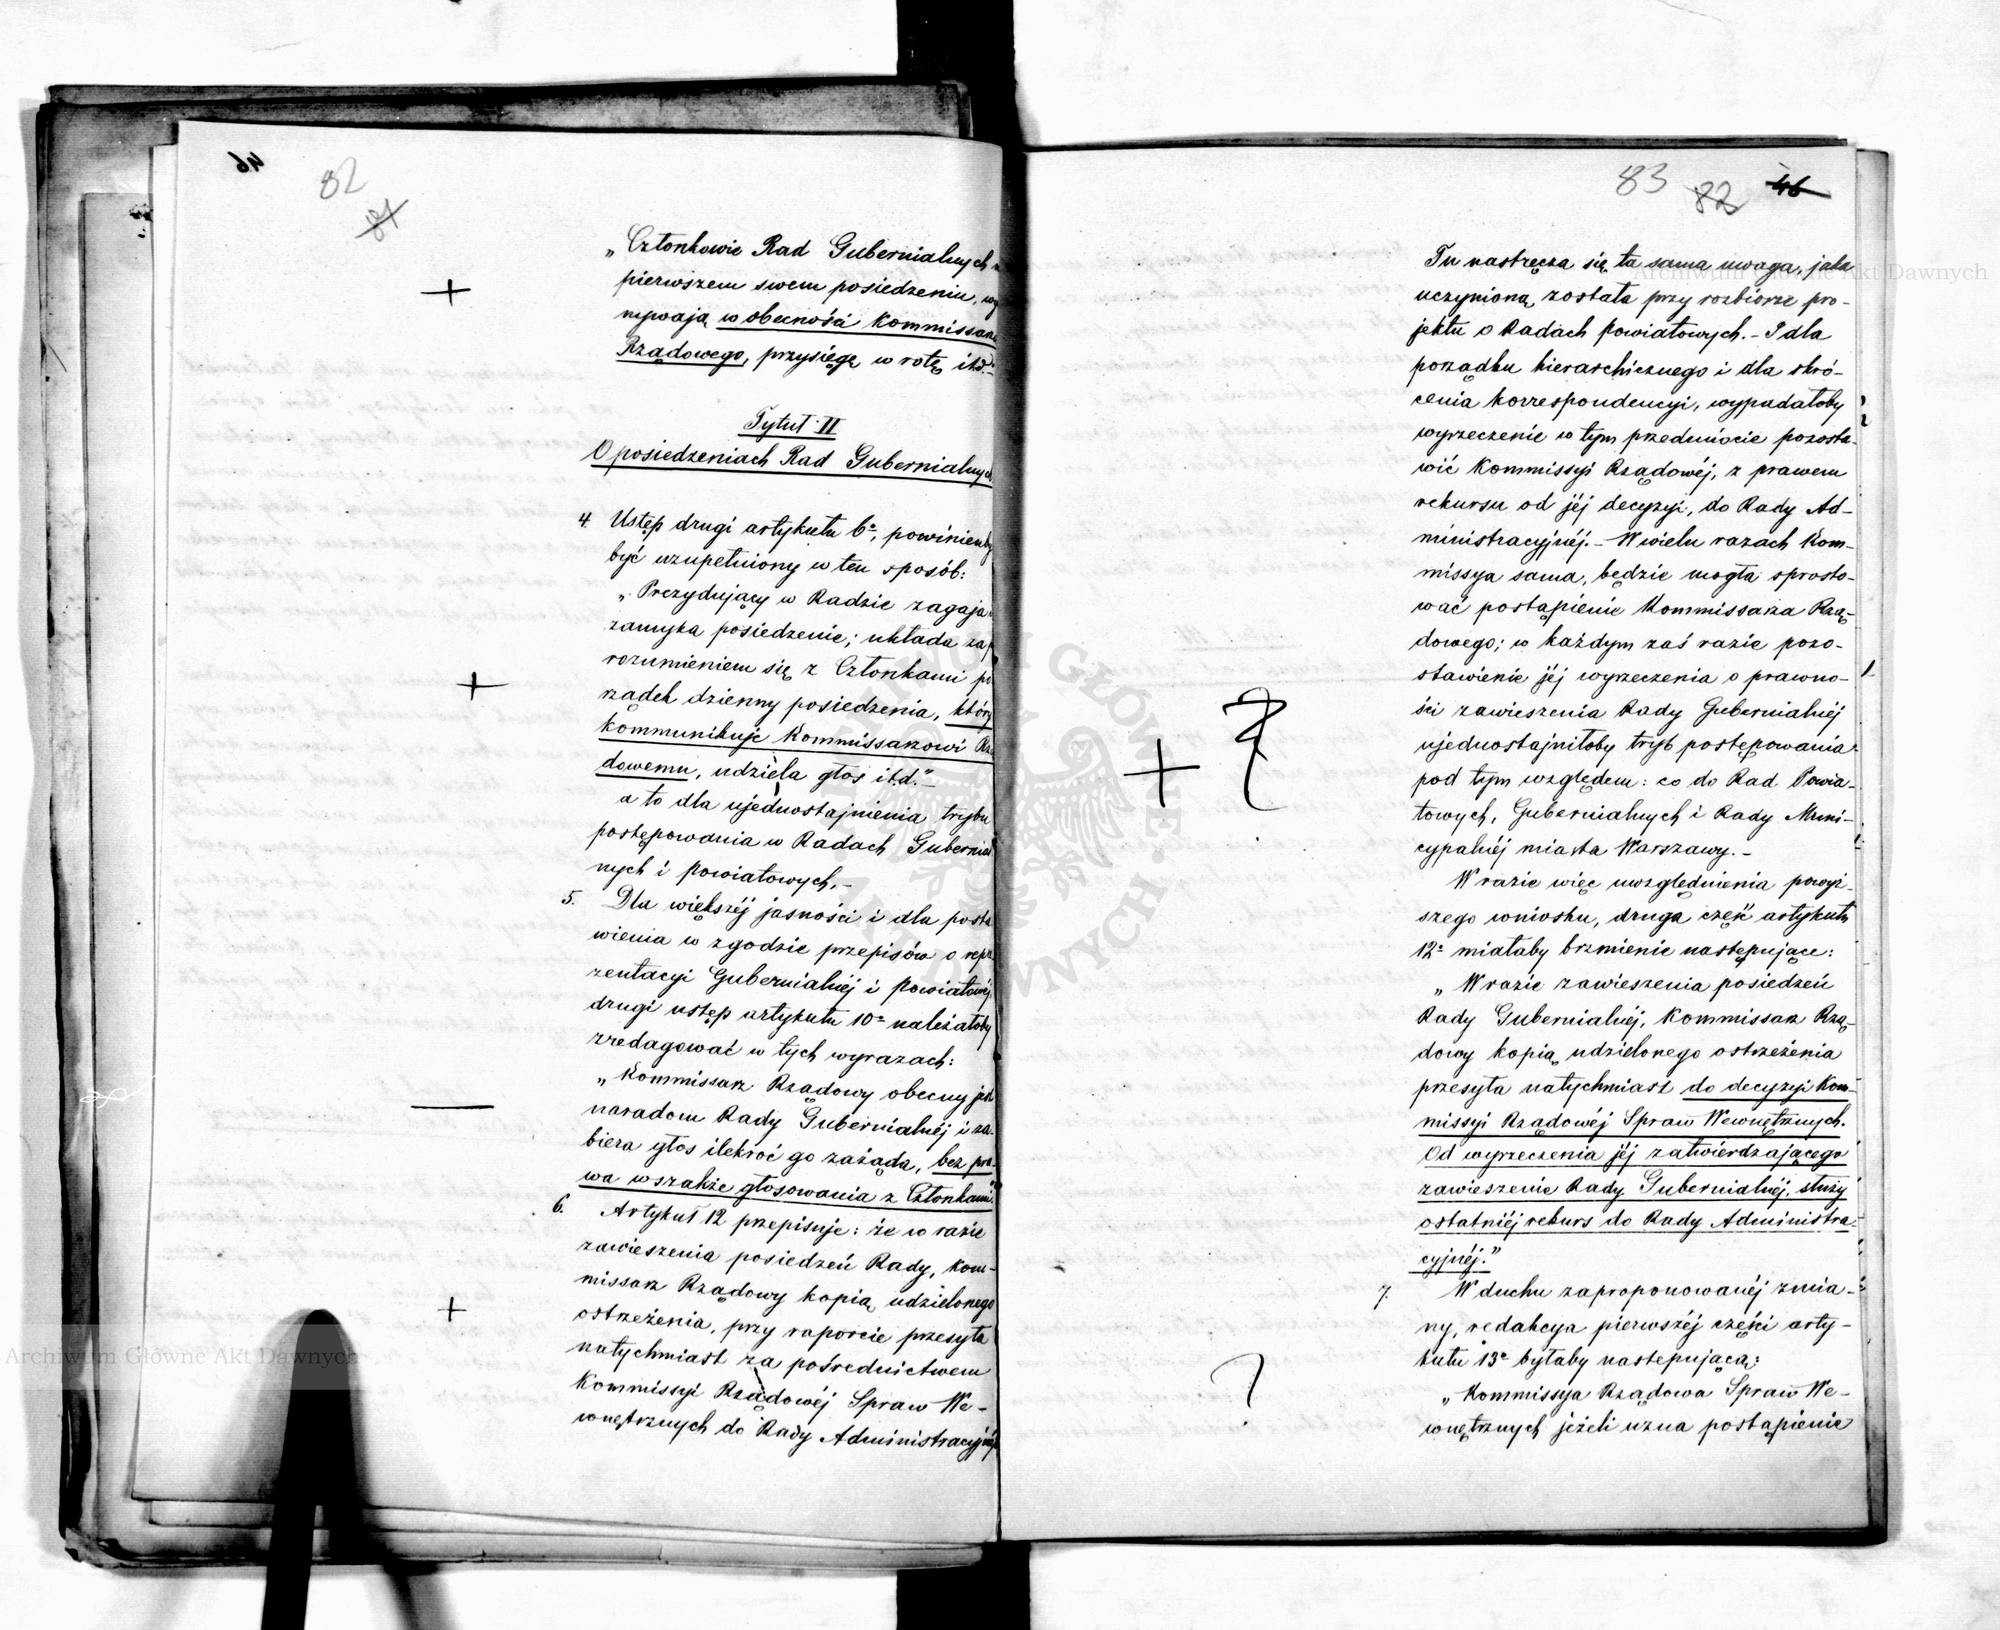 46
82
81
„Członkowie Rad Gubernialnych
pierwszem swem posiedzeniu,
nywają w obecności Kommissarza
Rządowego, przysięgę w rotę itd."–
Tytuł II
O posiedzeniach Rad Gubernialnych
4. Ustęp drugi artykułu 6º, powinienby
być uzupełniony w ten sposób:
„Prezydujący w Radzie zagaja
zamyka posiedzenie; układa za
rozumieniem się z Członkami po
rządek dzienny posiedzenia, który
kommunikuje Kommissarzowi Rzą
dowemu, udziela głos itd."–
a to dla ujednostajnienia trybu
postępowania w Radach Gubernial
nych i Powiatowych.–
5. Dla większéj jasności i dla posta
wienia w zgodzie przepisów o repre
zentacyi Gubernialnéj i Powiatowéj
drugi ustęp artykułu 10º należałoby
zredagować w tych wyrazach:
„Kommissarz Rządowy obecny jest
naradom Rady Gubernialnéj i za-
biera głos ilekroć go zażąda, bez pra-
wa wszakże głosowania z Członkami."
6. Artykuł 12 przepisuje: że w razie
zawieszenia posiedzeń Rady, Kom-
missarz Rządowy kopią udzielonego
ostrzeżenia, przy raporcie przesyła
natychmiast za pośrednictwem
Kommissyi Rządowéj Spraw We-
wnętrznych do Rady Administracyjnéj
83
82
46
Tu nastręcza się ta sama uwaga, jaka
uczynioną została przy rozbiorze pro-
jektu o Radach Powiatowych.– I dla
porządku hierarchicznego i dla skró-
cenia korrespondencyi, wypadałoby
wyrzeczenie w tym przedmiocie pozosta-
wić Kommissyi Rządowéj, z prawem
rekursu od jéj decyzyi, do Rady Ad-
ministracyjnéj.– W wielu razach Kom-
missya sama, będzie mogła sprosto-
wać postąpienie Kommissarza Rzą-
dowego; w każdym zaś razie pozo-
stawienie jéj wyrzeczenia o prawno-
ści zawieszenia Rady Gubernialnéj
ujednostajniłoby tryb postępowania
pod tym względem: co do Rad Powia-
towych, Gubernialnych i Rady Muni-
cypalnéj miasta Warszawy.–
W razie więc uwzględnienia powyż-
szego wniosku, druga część artykułu
12º miałaby brzmienie następujące:
„W razie zawieszenia posiedzeń
Rady Gubernialnéj, Kommissarz Rzą-
dowy kopią udzielonego ostrzeżenia
przesyła natychmiast do decyzyi Kom-
missyi Rządowéj Spraw Wewnętrznych.
Od wyrzeczenia jéj zatwierdzającego
zawieszenie Rady Gubernialnéj, służy
ostatniéj rekurs do Rady Administra-
cyjnéj."
7. W duchu zaproponowanéj zmia-
ny, redakcya pierwszéj części arty-
kułu 13º byłaby następującą:
„Kommissya Rządowa Spraw We-
wnętrznych jeżeli uzna postąpienie
?
Archiwum Główne Akt Dawnych
Archiwum Główne Akt Dawnych